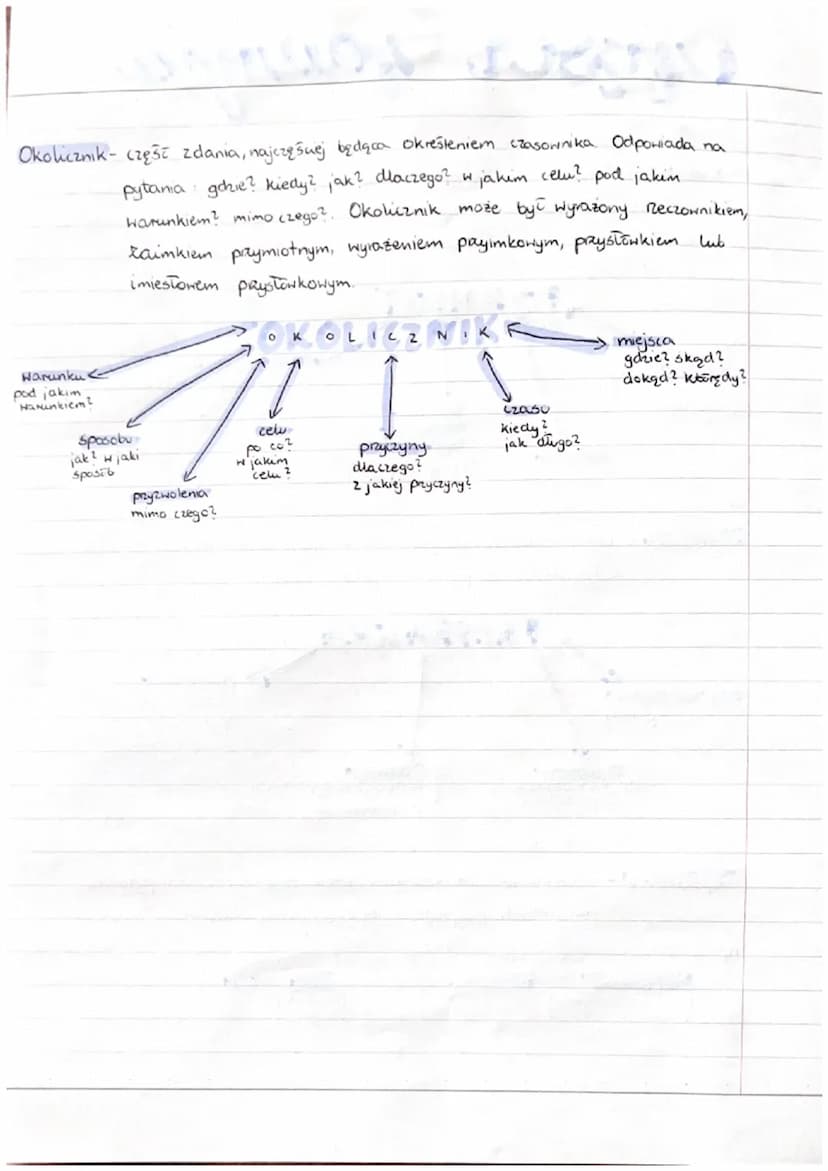 Okolicznik - część zdania, najczęściej będąca określeniem czasownika. Odpowiada na
pytania: gdzie? kiedy? jak? dlaczego? w jakim celu? pod jakim
warunkiem? mimo czego?. Okolicznik może być wyrażony rzeczownikiem,
zaimkiem przymiotnym, wyrażeniem przyimkowym, przysłówkiem lub
imiesłowem przysłówkowym.
OKOLICZNIK
warunku
pod jakim
warunkiem?
sposobu
jak? w jaki
sposób
przyzwolenia
mimo czego?
celu
po co?
w jakim
celu?
przyczyny
dlaczego?
z jakiej przyczyny?
czasu
kiedy?
jak długo?
miejsca
gdzie? skąd?
dokąd? którędy?